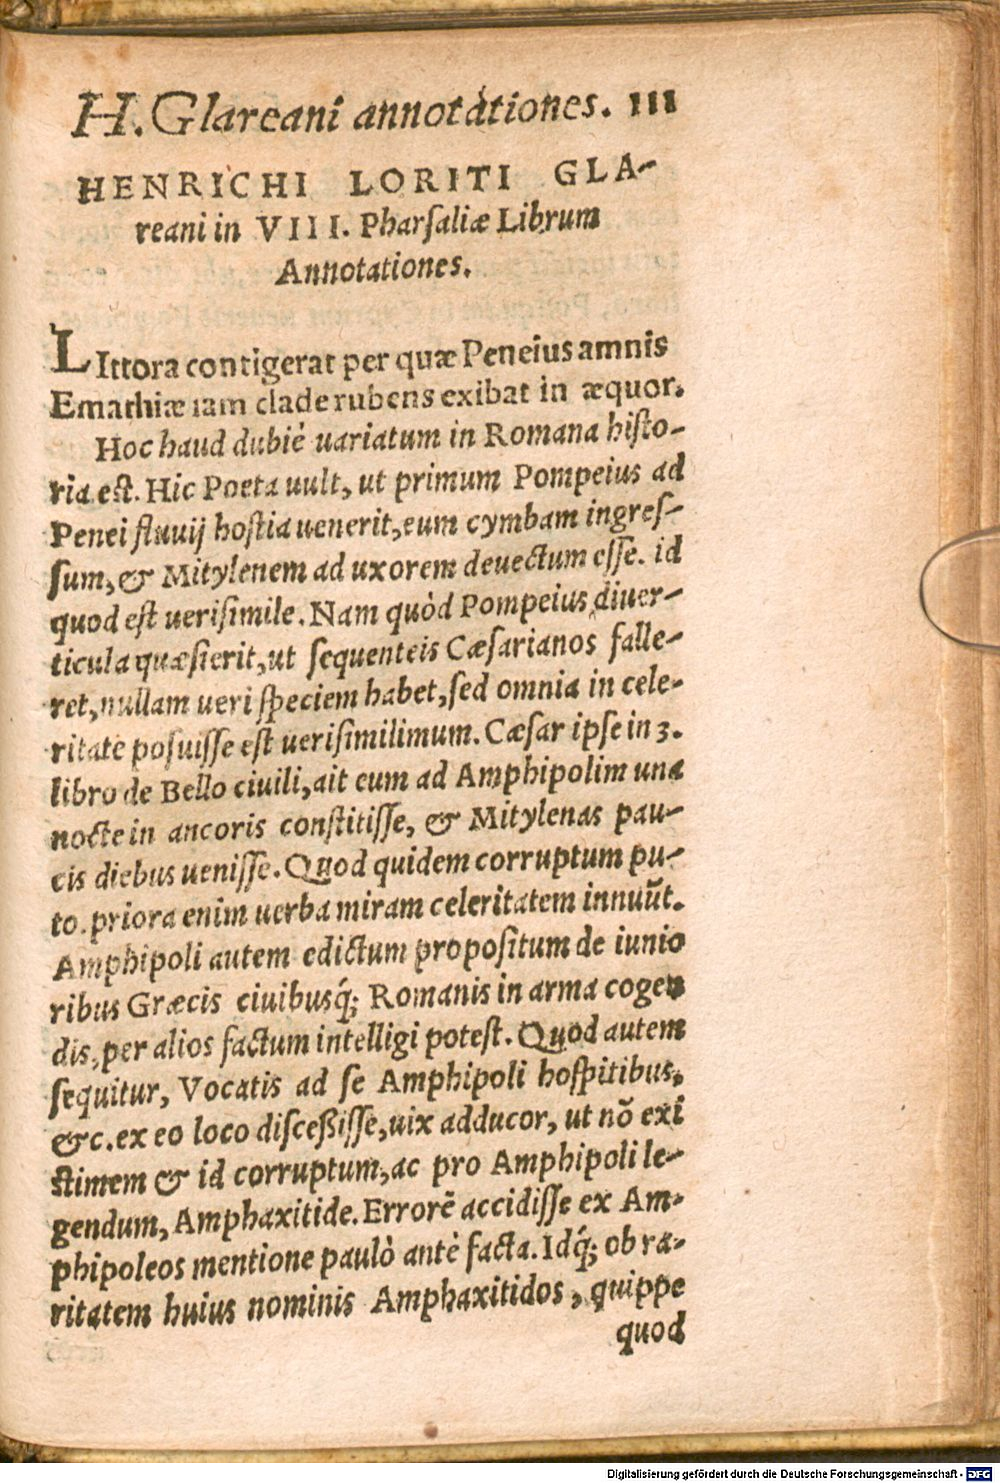 H. Glareani annotationes. III
HENRICHI LORITI GLA-
reani in VIII. Pharſaliæ Librum
Annotationes.
LIttora contigerat per quæ Peneius amnis
Emathiæ iam clade rubens exibat in æquor.
Hoc haud dubiè uariatum in Romana hiſto-
ria eſt. Hic Poeta uult, ut primum Pompeius ad
Penei fluuij hoſtia uenerit, eum cymbam ingreſ-
ſum, & Mitylenem ad uxorem deuectum eſſe. id
quod eſt ueriſimile. Nam quòd Pompeius diuer-
ticula quæſierit, ut ſequenteis Cæſarianos falle-
ret, nullam ueri ſpeciem habet, ſed omnia in cele-
ritate poſuiſſe eſt ueriſimilimum. Cæſar ipſe in 3.
libro de Bello ciuili, ait eum ad Amphipolim una
nocte in ancoris conſtitiſſe, & Mitylenas pau-
cis diebus ueniſſe. Quod quidem corruptum pu-
to. priora enim uerba miram celeritatem innuũt.
Amphipoli autem edictum propoſitum de iunio
ribus Græcis ciuibusq́; Romanis in arma cogen
dis, per alios factum intelligi poteſt. Quod autem
ſequitur, Vocatis ad ſe Amphipoli hoſpitibus,
&c. ex eo loco diſceßiſſe, uix adducor, ut nõ exi
ſtimem & id corruptum, ac pro Amphipoli le-
gendum, Amphaxitide. Errorẽ accidiſſe ex Am-
phipoleos mentione paulò antè facta. Idq́; ob ra-
ritatem huius nominis Amphaxitidos, quippe
quod
Digitalisierung gefördert durch die Deutsche Forschungsgemeinschaft - DFG